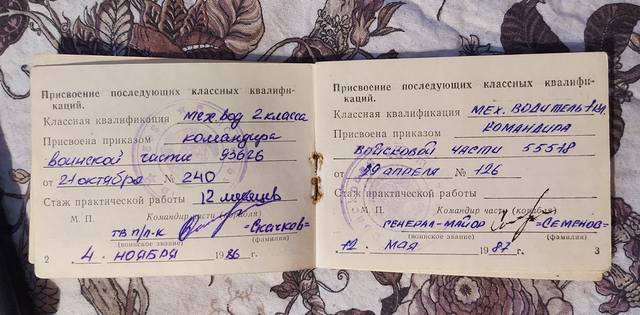 Присвоение последующих классных квалифи-
каций.
Классная квалификация мех.вод 2 класса
Присвоена приказом командира
воинской части 93626
от 21 октября № 240
Стаж практической работы 12 месяцев
М. П. Командир части (корабля)
п/п-к
(воинское звание) (фамилия)
4. НОЯБРЯ 1986 г.
2
Присвоение последующих классных квалифи-
каций.
Классная квалификация МЕХ. ВОДИТЕЛЬ 1 кл.
Присвоена приказом КОМАНДИРА
ВОЙСКОВОЙ ЧАСТИ 55518
от 29 АПРЕЛЯ № 126
Стаж практической работы
М. П. Командир части (корабля)
ГЕНЕРАЛ-МАЙОР =СЕМЕНОВ=
(воинское звание) (фамилия)
12. МАЯ 1987 г.
3